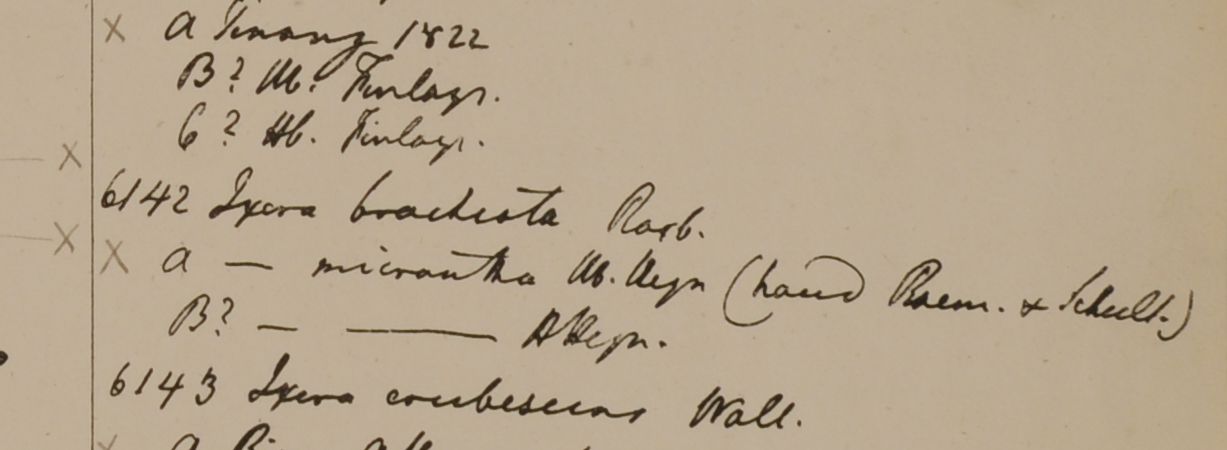 x a Penang 1822
B? Hb. Finlays.
C? Hb. Finlays.
x
6142 Ixora brachiata Roxb.
x x a — micrantha Hb. Heyn (haud Roem. & Schult.)
B? — —— Hb Heyn.
6143 Ixora erubescens Wall.